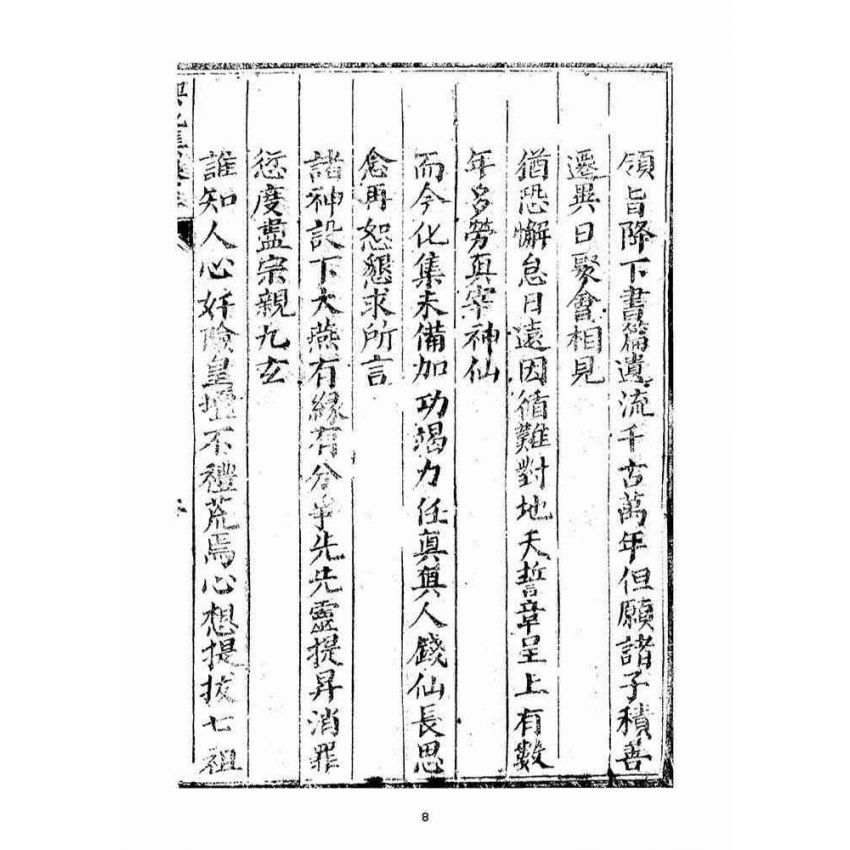 領旨降下書篇遺流千古萬年但願諸子積善
遷異日聚會相見
猶恐懈怠日遠因循難對地天誓章呈上有数
年多勞真宰神仙
而今化集未備加功竭力任真真人錢仙長思
念再恕懇求所言
諸神設下大燕有縁有分爭先先靈提昇消罪
愆度盡宗親九玄
誰知人心奸險皇壇不禮荒焉心想提拔七祖
8